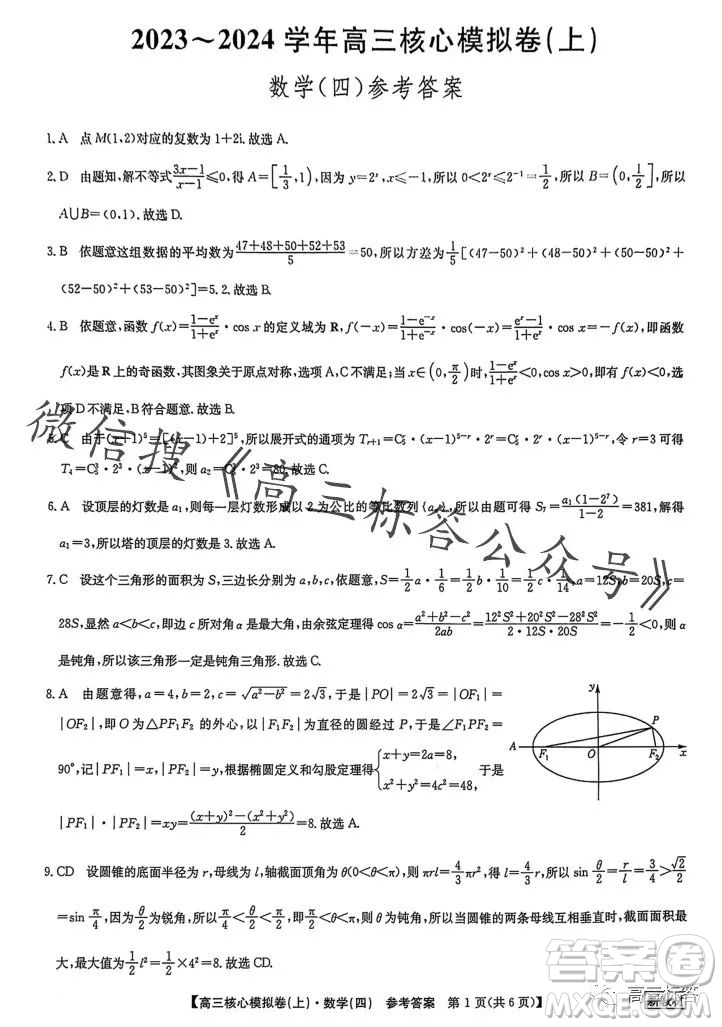 2023～2024 学年高三核心模拟卷(上)
数学(四)参考答案
1. A 点 M(1,2)对应的复数为 1+2i. 故选 A.
2. D 由题知,解不等式(3x-1)/(x-1)≤0,得 A=[1/3,1),因为 y=2^x,x≤-1,所以 0<2^x≤2^(-1)=1/2,所以 B=(0,1/2],所以
A∪B=(0,1). 故选 D.
3. B 依题意这组数据的平均数为(47+48+50+52+53)/5=50,所以方差为1/5[(47-50)²+(48-50)²+(50-50)²+
(52-50)²+(53-50)²]=5.2. 故选 B.
4. B 依题意,函数 f(x)=(1-e^x)/(1+e^x)·cos x 的定义域为 R,f(-x)=(1-e^(-x))/(1+e^(-x))·cos(-x)=(e^x-1)/(1+e^x)·cos x=-f(x),即函数
f(x)是 R 上的奇函数,其图象关于原点对称,选项 A,C 不满足;当 x∈(0,π/2)时,(1-e^x)/(1+e^x)<0,cos x>0,即 f(x)<0,选
项 D 不满足,B 符合题意. 故选 B.
5. C 由于(x+1)^5=[(x-1)+2]^5,所以展开式的通项为 T_(r+1)=C_5^r·(x-1)^(5-r)·2^r=C_5^r·2^r·(x-1)^(5-r),令 r=3 可得
T_4=C_5^3·2³·(x-1)²,则 a_2=C_5^3·2³=80. 故选 C.
6. A 设顶层的灯数是 a_1,则每一层灯数形成以 2 为公比的等比数列{a_n},所以由题可得 S_7=a_1(1-2^7)/(1-2)=381,解得
a_1=3,所以塔的顶层的灯数是 3. 故选 A.
7. C 设这个三角形的面积为 S,三边长分别为 a,b,c,依题意,S=1/2 a·1/6=1/2 b·1/10=1/2 c·1/14,a=12S,b=20S,c=
28S,显然 a<b<c,即边 c 所对角 α 是最大角,由余弦定理得 cos α=(a²+b²-c²)/(2ab)=(12²S²+20²S²-28²S²)/(2·12S·20S)=-1/2<0,则 α
是钝角,所以该三角形一定是钝角三角形. 故选 C.
8. A 由题意得,a=4,b=2,c=√(a²-b²)=2√3,于是|PO|=2√3=|OF_1|=
|OF_2|,即 O 为△PF_1F_2 的外心,以|F_1F_2|为直径的圆经过 P,于是∠F_1PF_2=
90°,记|PF_1|=x,|PF_2|=y,根据椭圆定义和勾股定理得{x+y=2a=8, x²+y²=4c²=48, 于是
|PF_1|·|PF_2|=xy=((x+y)²-(x²+y²))/2=8. 故选 A.
y
P
A
F_1
O
F_2
x
9. CD 设圆锥的底面半径为 r,母线为 l,轴截面顶角为 θ(0<θ<π),则 πrl=4/3 πr²,得 l=4/3 r,所以 sin θ/2=r/l=3/4>√2/2
=sin π/4,因为 θ/2 为锐角,所以 π/4<θ/2<π/2,即 π/2<θ<π,所以 θ 为钝角,所以当圆锥的两条母线互相垂直时,截面面积最
大,最大值为 1/2 l²=1/2×(4/3 r)²=8/9 r². 故选 CD.
【高三核心模拟卷(上)·数学(四) 参考答案 第 1 页(共 6 页)】
微信搜《高三标答公众号》
高三标答
答案圈
MXQE.COM